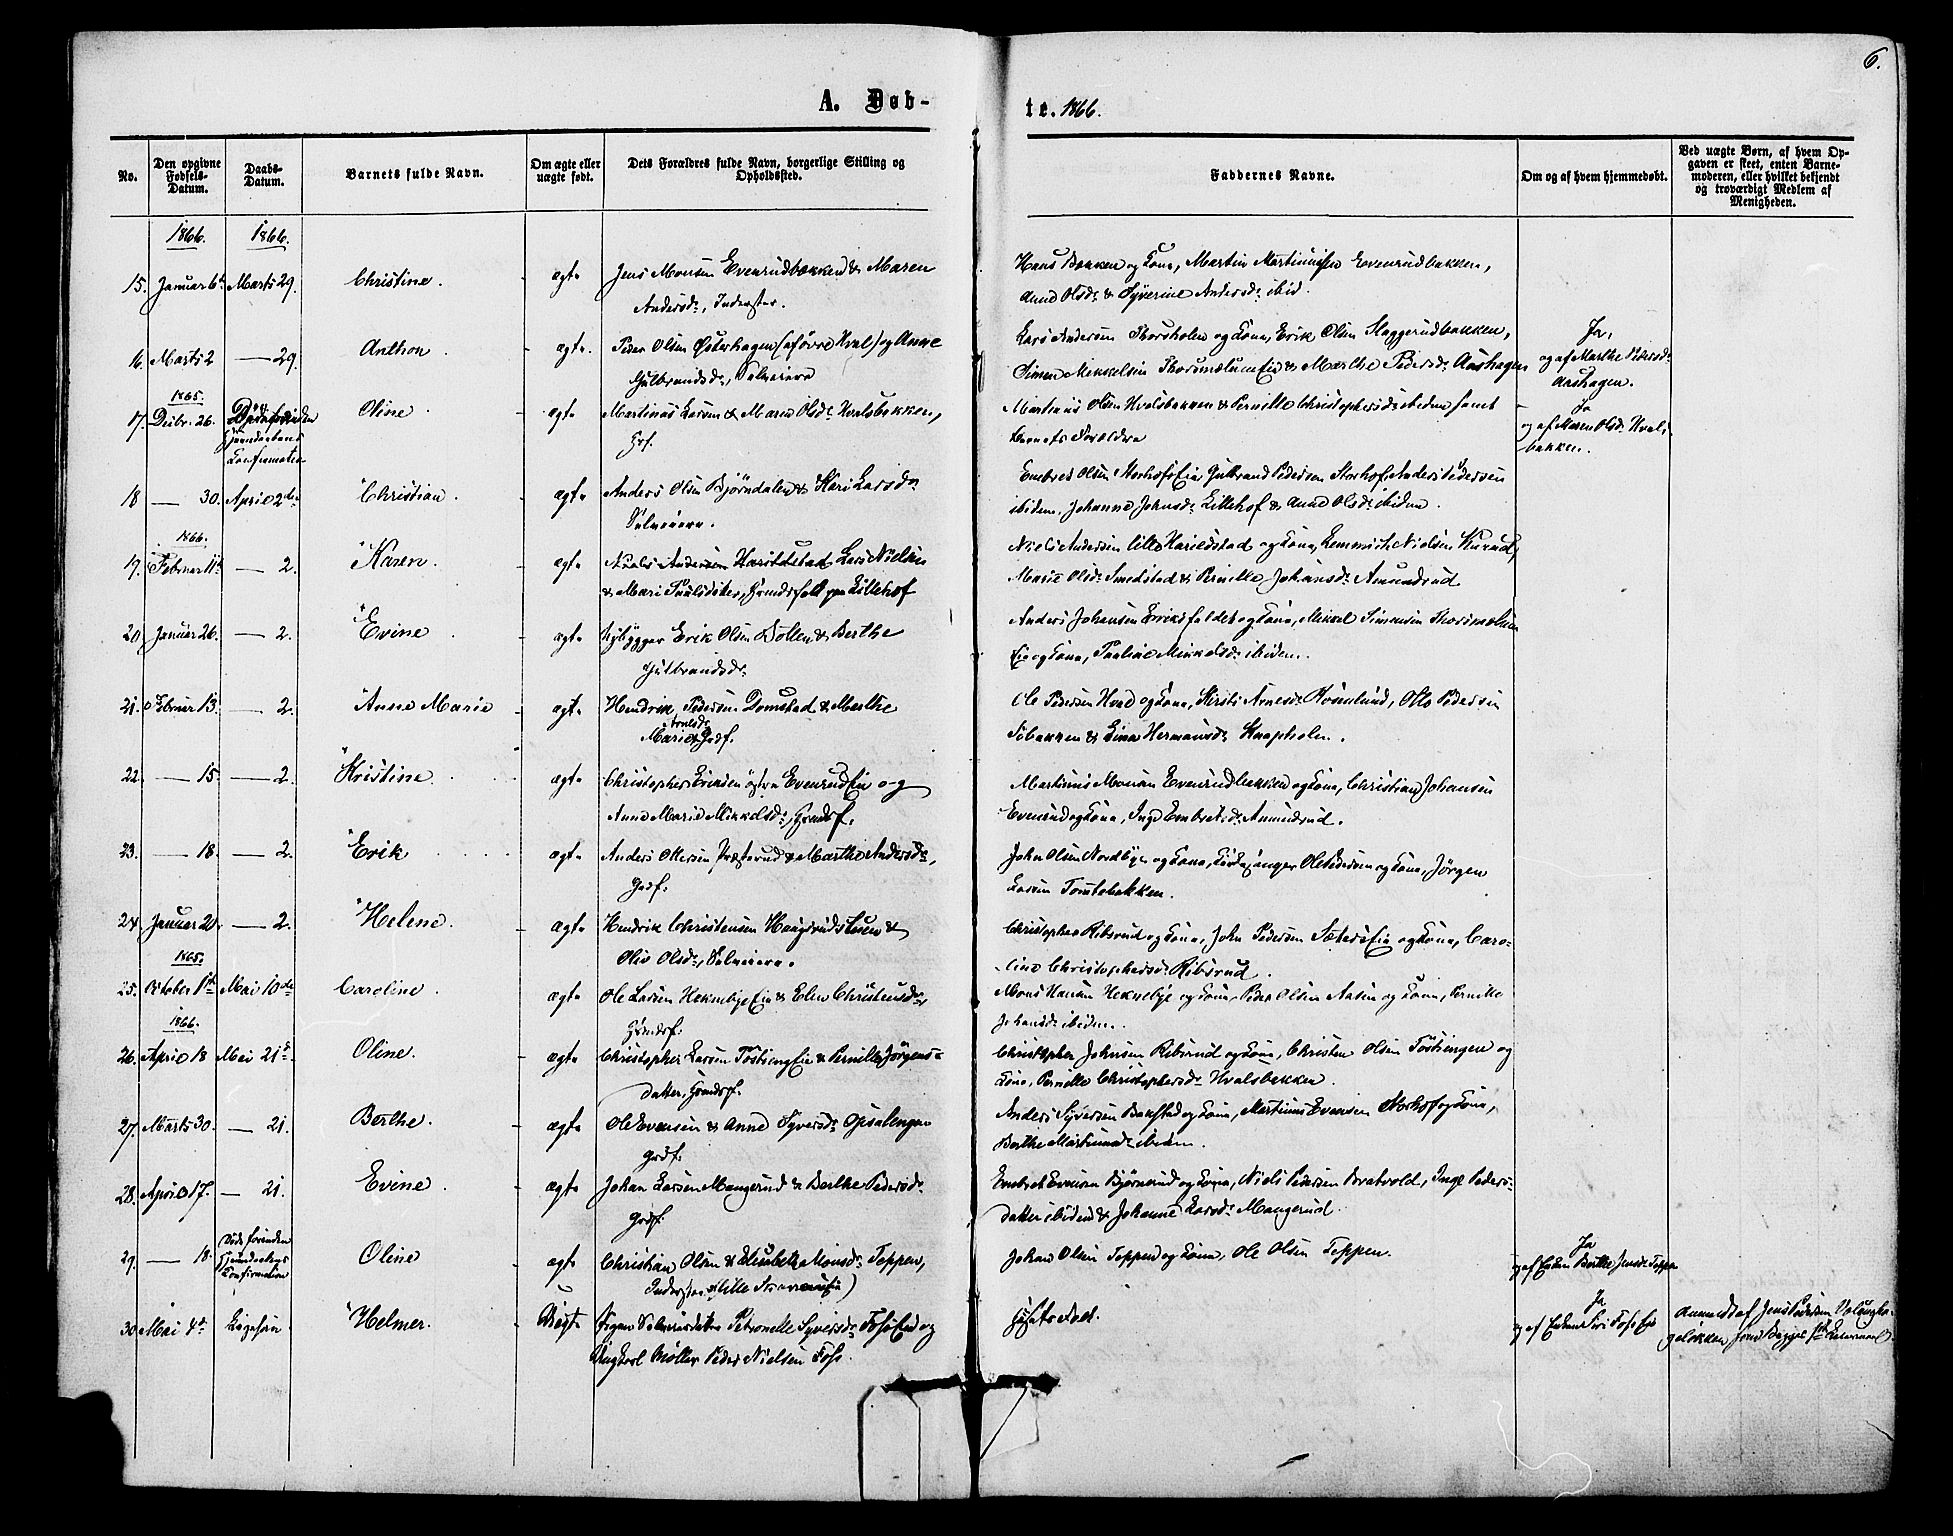 6.
A. Døb-
te. 1866.
No.
Den opgivne Fødsels-Datum.
Daabs-Datum.
Barnets fulde Navn.
Om ægte eller uægte født.
Dets Forældres fulde Navn, borgerlige Stilling og Opholdssted.
Faddernes Navne.
Om og af hvem hjemmedøbt.
Ved uægte Børn, af hvem Opgaven er skeet, enten Barnemoderen, eller hvilket bekjendt og troværdigt Medlem af Menigheden.
1866. 1866.
15. Januar 6te Marts 29. Christine. ægte Jens Monsen Evenrudbakken & Maren
Andersdr, Inderster.
Hans Bakken og Kone, Martin Martinussen Evenrudbakken,
Anne Olsdr & Syverine Andersdr ibid.
16. Marts 2 — 29. Anthon ægte. Peder Olsen Østerhagen (af øvre Hval) og Anne
Gulbrandsdr, Selveiere
Lars Andersen Thorsholen og Kone, Erik Olsen Slaggerudbakken,
Simen Mikkelsen Thorsmælum Eie & Marthe Pedersdr Aashagen
Ja,
og af Marthe Pedersdr
Aashagen.
1865.
17. Decbr. 26. Død forinden
Hjemdaabens
Confirmation
Oline ægte Martinus Larsen & Maren Olsdr Hvalsbakken,
Grf.
Martinus Olsen Hvalsbakken & Pernille Christophersdr ibidem samt
Barnets Forældre
Ja
og af Maren Olsdr Hvals-
bakken.
18 — 30. April 2den Christian. ægte Anders Olsen Bjørndalen & Kari Larsdr
Selveiere.
Embret Olsen Storhofs Eie, Gulbrand Pedersen Storhof, Anders Pedersen
ibidem, Johanne Johnsdr Lillehof & Anne Olsdr ibidem.
1866.
19. Februar 11te — 2. Karen. ægte Lars Nielsen
& Mari Paulsdatter, Grmdsfolk paa Lillehof
Niels Andersen lille Harildstad og Kone, Nielsen
Marie Olsdr Smedstad & Pernille Johansdr Amundrud
20 Januar 26. — 2. Evine ægte Nybygger Erik Olsen Dollen & Berthe
Gulbrandsdr
Anders Johansen Eriksfaldet og Kone, Mikkel Simensen Thorsmælum
Eie og Kone, Pauline Mikkelsdr ibidem.
21. Februar 13. — 2. Anne Marie ægte Hendrik Pedersen Domstad & Marthe
Marie Arnesdr Grdf.
Ole Pedersen Hval og Kone, Kirsti Arnesdr Rosenlund, Otto Pedersen
Sobakken & Hermansdr Knapholen.
22. — 15. — 2. Kristine ægte Christopher Eriksen østre Evenrud Eie og
Anne Marie Mikkelsdr, Grmdsf.
Martinus Monsen Evenrudbakken og Kone, Christian Johansen
Evenrud og Kone, Inge Embretsdr Amundrud.
23. — 18. — 2. Erik ægte Anders Olsen Præsterud & Marthe Andersdr,
Grdf.
John Olsen Nordbye og Kone, Kirkesanger Ole Pedersen og Kone, Jørgen
Larsen Tomtebakken.
24 Januar 20. — 2. Helene. ægte Hendrik Christensen & 
Olsdr, Selveiere.
Christopher Ribsrud og Kone, John Pedersen Sæters Eie og Kone, Caro-
line Christophersdr Ribsrud.
1865.
25. October 1ste Mai 10de Caroline. ægte Ole Larsen Heknebye Eie & Elen Christensdr,
Grmdsf.
Mons Hansen Heknebye og Kone, Peder Olsen Aasen og Kone, Pernille
Johansdr ibidem.
1866.
26. April 18 Mai 21de Oline. ægte Christopher Larsen Tøstiengen Eie & Pernille Jørgens-
datter, Grmdsf.
Christopher Johnsen Ribsrud og Kone, Christen Olsen Tøstiengen og
Kone, Pernille Christophersdr Hvalsbakken.
27. Marts 30. — 21. Berthe. ægte Ole Evensen & Anne Syversdr Opsalengen
Grdf.
Anders Syversen Bakstad og Kone, Martinus Evensen Storhof og Kone,
Berthe Martinusdr ibidem.
28. April 17. — 21. Evine. ægte Johan Larsen Mangerud & Berthe Pedersdr
Grdf.
Embret Evensen Bjørnerud og Kone, Niels Pedersen Bratvold, Inge Peders-
datter ibidem & Johanne Larsdr Mangerud.
29. — 18. Død forinden
Hjemdaabens
Confirmation
Oline ægte Christian Olsen & Elisabeth Monsdr Toppen,
Inderster
Johan Olsen Toppen og Kone, Ole Olsen Toppen.
Ja
og af Enken Berthe Jensdr Toppen
30. Mai 4de Ligesaa Helmer. Uægte Pigen Petronelle Syversdr Foss Eie og
Ungkarl Møller Peder Nielsen Foss.
Ja
og af Enken Siri Foss Eie
Anmeldt af Jens Pedersen